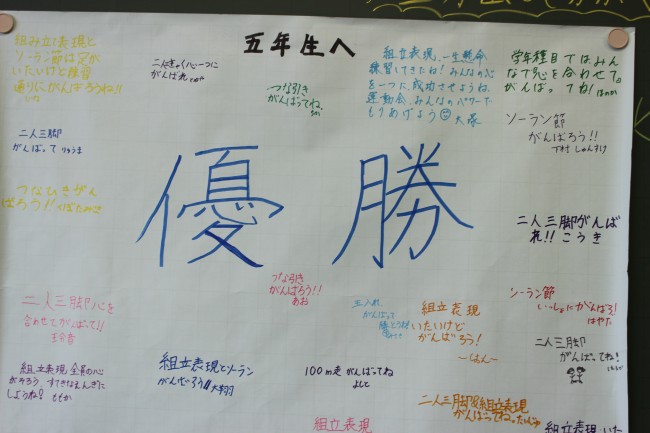 五年生へ
組み立て表現と
ソーラン節は足が
いたいけど練習
通りにがんばろうね!!
二人で心一つに
がんばれ
つな引き
がんばってね。
組立表現、一生懸命
練習してきたね!みんなの心
を一つに、成功させようね。
運動会、みんなのパワーで
もりあげよう
大塚
学年種目ではみん
なで心を合わせて。
がんばってね!ほのか
二人三脚
がんばってりゅうま
ソーラン節
がんばろう!!
下村しゅんすけ
優勝
つなひきがん
ばろう!!くぼたみさ
二人三脚がんば
れ!!こうき
二人三脚心を
合わせてがんばって!!
つな引き
がんばろう!!
あお
玉入れ
がんばって
組立表現
いたいけど
がんばろう!
ソーラン節
いっしょにがんばろ!
はやた
組立表現全員の心
がそろうすてきなえんぎに
しようね?ももか
組立表現とソーラン
がんばろう!!大翔
100m走がんばってね
よしと
二人三脚
がんばってね!
二人三脚&組立表現
がんばってね。
組立表現
組立表現いた